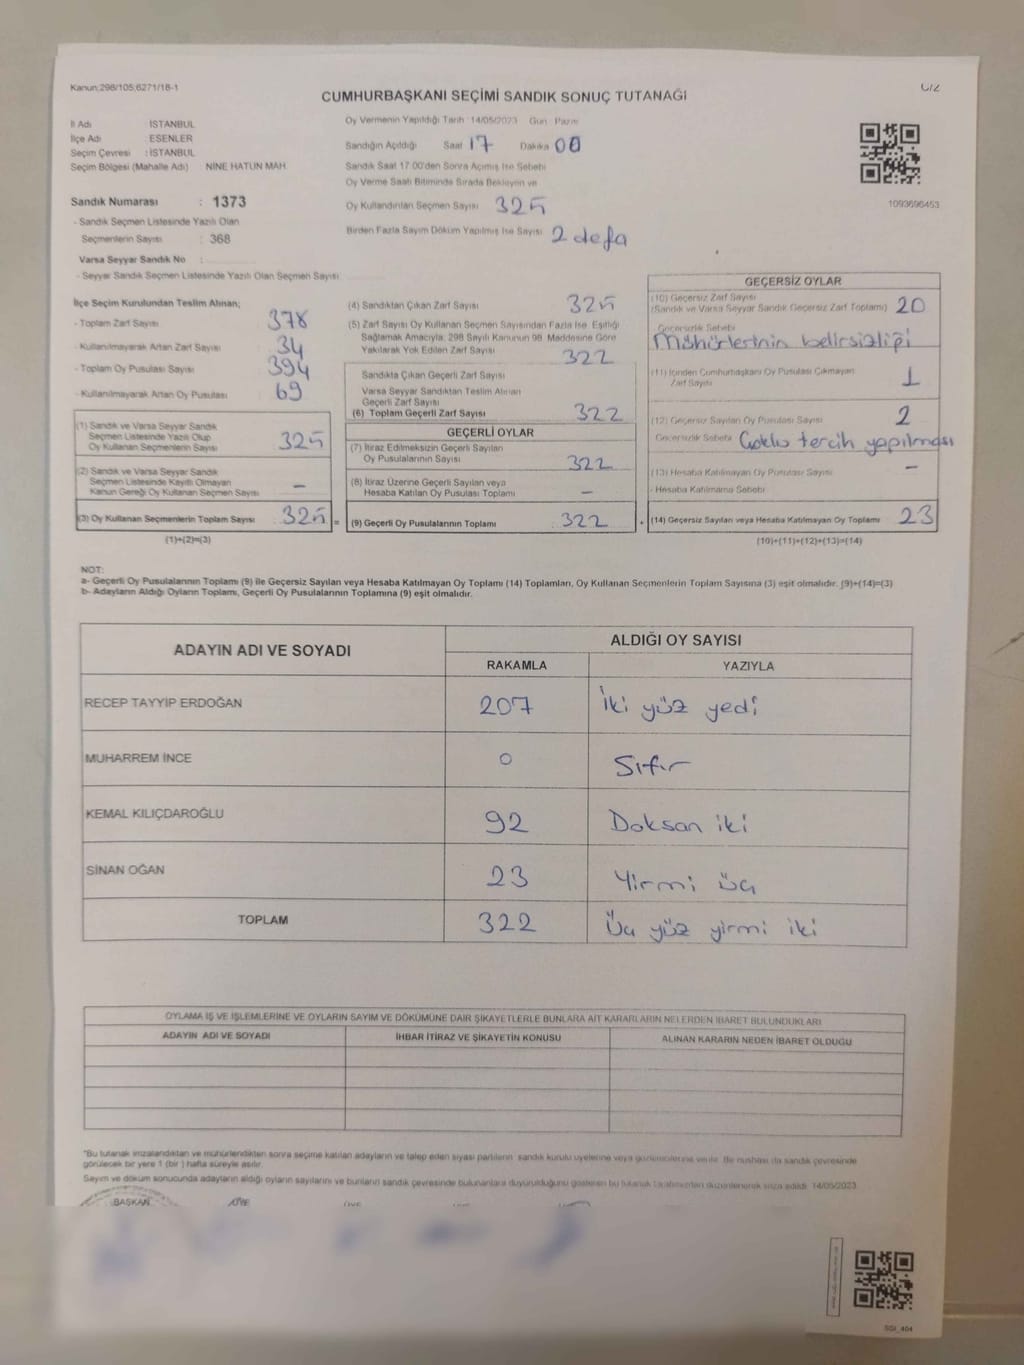 Kanun:298/105;6271/18-1
C/2
CUMHURBAŞKANI SEÇİMİ SANDIK SONUÇ TUTANAĞI
İl Adı : İSTANBUL
İlçe Adı : ESENLER
Seçim Çevresi : İSTANBUL
Seçim Bölgesi (Mahalle Adı) NİNE HATUN MAH.
Sandık Numarası : 1373
- Sandık Seçmen Listesinde Yazılı Olan
Seçmenlerin Sayısı : 368
Varsa Seyyar Sandık No :
- Seyyar Sandık Seçmen Listesinde Yazılı Olan Seçmen Sayısı
Oy Vermenin Yapıldığı Tarih :14/05/2023 Gün Pazar
Sandığın Açıldığı Saat 17 Dakika 00
Sandık Saat 17.00'den Sonra Açılmış İse Sebebi
Oy Verme Saati Bitiminde Sırada Bekleyen ve
Oy Kullandırılan Seçmen Sayısı 325
Birden Fazla Sayım Döküm Yapılmış İse Sayısı 2 defa
1093696453
İlçe Seçim Kurulundan Teslim Alınan;
- Toplam Zarf Sayısı 378
- Kullanılmayarak Artan Zarf Sayısı 34
- Toplam Oy Pusulası Sayısı 394
- Kullanılmayarak Artan Oy Pusulası 69
(1) Sandık ve Varsa Seyyar Sandık
Seçmen Listesinde Yazılı Olup
Oy Kullanan Seçmenlerin Sayısı 325
(2) Sandık ve Varsa Seyyar Sandık
Seçmen Listesinde Kayıtlı Olmayan
Kanun Gereği Oy Kullanan Seçmen Sayısı –
(3) Oy Kullanan Seçmenlerin Toplam Sayısı 325 =
(1)+(2)=(3)
(4) Sandıktan Çıkan Zarf Sayısı 325
(5) Zarf Sayısı Oy Kullanan Seçmen Sayısından Fazla İse, Eşitliği
Sağlamak Amacıyla; 298 Sayılı Kanunun 98. Maddesine Göre
Yakılarak Yok Edilen Zarf Sayısı 322
Sandıkta Çıkan Geçerli Zarf Sayısı
Varsa Seyyar Sandıktan Teslim Alınan
Geçerli Zarf Sayısı
(6) Toplam Geçerli Zarf Sayısı 322
GEÇERLİ OYLAR
(7) İtiraz Edilmeksizin Geçerli Sayılan
Oy Pusulalarının Sayısı 322
(8) İtiraz Üzerine Geçerli Sayılan veya
Hesaba Katılan Oy Pusulası Toplamı –
(9) Geçerli Oy Pusulalarının Toplamı 322 +
GEÇERSİZ OYLAR
(10) Geçersiz Zarf Sayısı
(Sandık ve Varsa Seyyar Sandık Geçersiz Zarf Toplamı) 20
Geçersizlik Sebebi
Mühürlerinin belirsizliği
(11) İçinden Cumhurbaşkanı Oy Pusulası Çıkmayan
Zarf Sayısı 1
(12) Geçersiz Sayılan Oy Pusulası Sayısı 2
Geçersizlik Sebebi Çoklu tercih yapılması
(13) Hesaba Katılmayan Oy Pusulası Sayısı –
- Hesaba Katılmama Sebebi
(14) Geçersiz Sayılan veya Hesaba Katılmayan Oy Toplamı 23
(10)+(11)+(12)+(13)=(14)
NOT:
a- Geçerli Oy Pusulalarının Toplamı (9) ile Geçersiz Sayılan veya Hesaba Katılmayan Oy Toplamı (14) Toplamları, Oy Kullanan Seçmenlerin Toplam Sayısına (3) eşit olmalıdır. (9)+(14)=(3)
b- Adayların Aldığı Oyların Toplamı, Geçerli Oy Pusulalarının Toplamına (9) eşit olmalıdır.
ADAYIN ADI VE SOYADI
ALDIĞI OY SAYISI
RAKAMLA YAZIYLA
RECEP TAYYİP ERDOĞAN 207 İki yüz yedi
MUHARREM İNCE 0 Sıfır
KEMAL KILIÇDAROĞLU 92 Doksan iki
SİNAN OĞAN 23 Yirmi üç
TOPLAM 322 Üç yüz yirmi iki
OYLAMA İŞ VE İŞLEMLERİNE VE OYLARIN SAYIM VE DÖKÜMÜNE DAİR ŞİKAYETLERLE BUNLARA AİT KARARLARIN NELERDEN İBARET BULUNDUKLARI
ADAYIN ADI VE SOYADI İHBAR İTİRAZ VE ŞİKAYETİN KONUSU ALINAN KARARIN NEDEN İBARET OLDUĞU
*Bu tutanak imzalandıktan ve mühürlendikten sonra seçime katılan adayların ve talep eden siyasi partilerin sandık kurulu üyelerine veya gözlemcilerine verilir. Bir nüshası da sandık çevresinde
görülecek bir yere 1 (bir) hafta süreyle asılır.
Sayım ve döküm sonucunda adayların aldığı oyların sayılarını ve bunların sandık çevresinde bulunanlara duyurulduğunu gösteren bu tutanak tarafımızdan düzenlenerek imza edildi. 14/05/2023
BAŞKAN ÜYE ÜYE
SGI_404